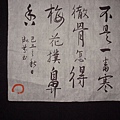 不是一番寒
徹骨怎得
梅花撲鼻
香